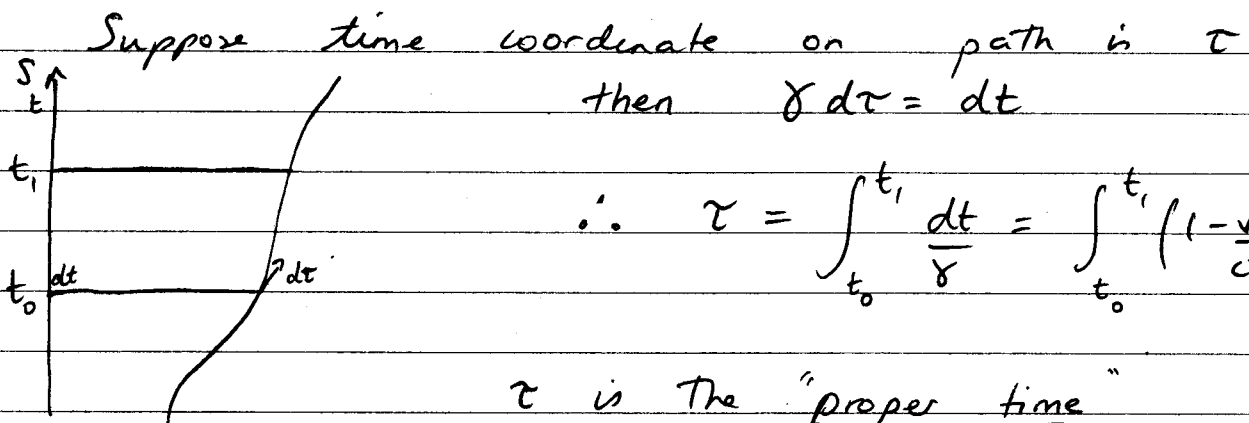 Suppose time coordinate on path is τ
S
t
then γ dτ = dt
t₁
∴ τ = ∫_{t₀}^{t₁} dt/γ = ∫_{t₀}^{t₁} (1 - v/c
t₀ dt dτ
τ is the "proper time"